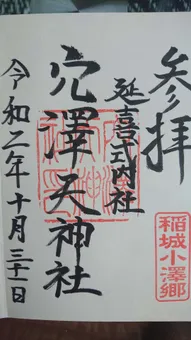 参拝
延喜式内社
穴澤天神社
令和二年十月三十一日
稲城小澤郷